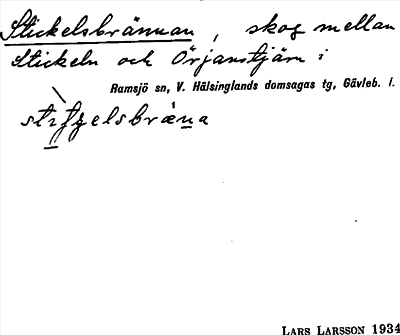 Stickelsbrännan, skog mellan
Stickeln och Örjanstjärn i
Ramsjö sn, V. Hälsinglands domsagas tg, Gävleb. l.
LARS LARSSON 1934